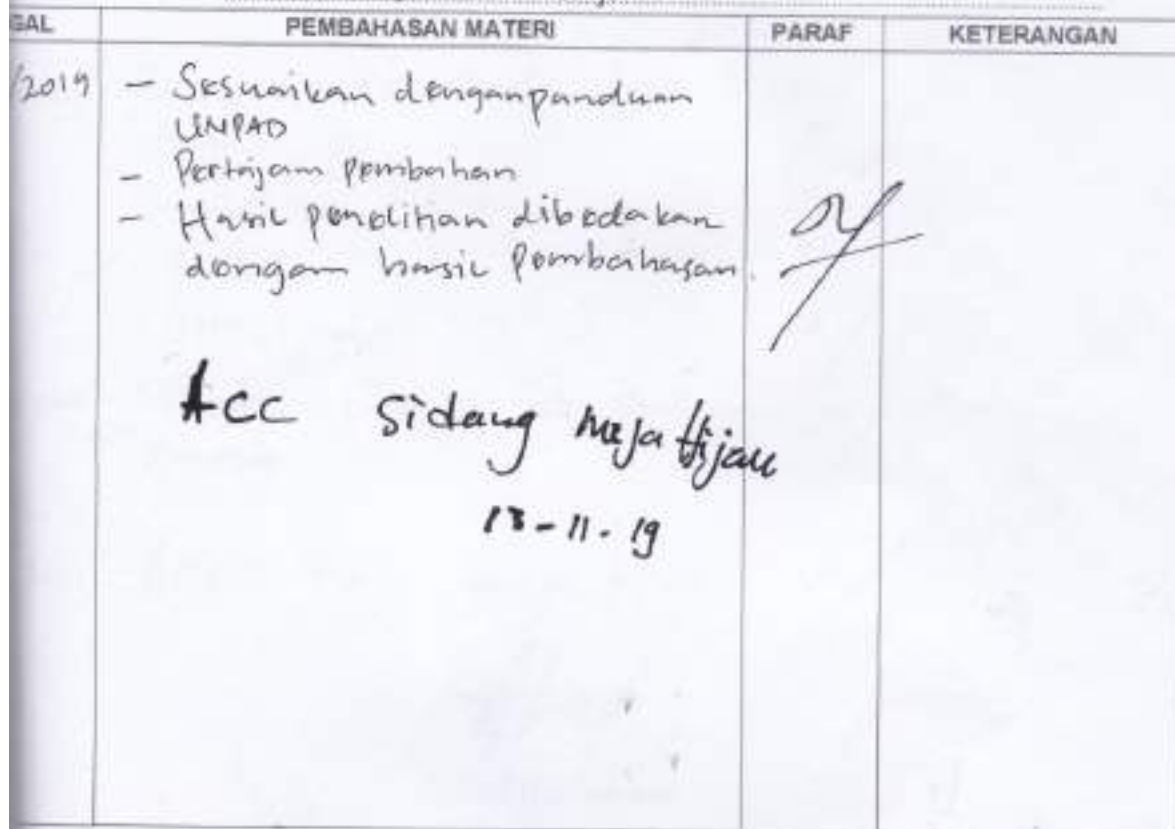 GAL PEMBAHASAN MATERI PARAF KETERANGAN
/2019 - Sesuaikan dengan panduan
UNPAD
- Pertajam pembahan
- Hasil penelitian dibedakan
dengan hasil pembahasan.
Acc Sidang meja Hijau
13-11-19